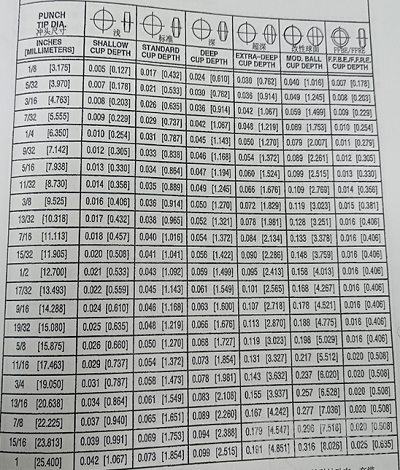 PUNCH
TIP DIA.
冲头尺寸
浅 标准 深 超深 改性球面 FFBE/FFRE
INCHES [MILLIMETERS] SHALLOW CUP DEPTH STANDARD CUP DEPTH DEEP CUP DEPTH EXTRA-DEEP CUP DEPTH MOD. BALL CUP DEPTH F.F.B.E./F.F.R.E. CUP DEPTH
1/8 [3.175] 0.005 [0.127] 0.017 [0.432] 0.024 [0.610] 0.030 [0.762] 0.040 [1.016] 0.007 [0.178]
5/32 [3.970] 0.007 [0.178] 0.021 [0.533] 0.030 [0.762] 0.036 [0.914] 0.049 [1.245] 0.008 [0.203]
3/16 [4.763] 0.008 [0.203] 0.026 [0.635] 0.036 [0.914] 0.042 [1.067] 0.059 [1.499] 0.009 [0.229]
7/32 [5.555] 0.009 [0.229] 0.029 [0.737] 0.042 [1.067] 0.048 [1.219] 0.069 [1.753] 0.010 [0.254]
1/4 [6.350] 0.010 [0.254] 0.031 [0.787] 0.045 [1.143] 0.050 [1.270] 0.079 [2.007] 0.011 [0.279]
9/32 [7.142] 0.012 [0.305] 0.033 [0.838] 0.046 [1.168] 0.054 [1.372] 0.089 [2.261] 0.012 [0.305]
5/16 [7.938] 0.013 [0.330] 0.034 [0.864] 0.047 [1.194] 0.060 [1.524] 0.099 [2.515] 0.013 [0.330]
11/32 [8.730] 0.014 [0.358] 0.035 [0.889] 0.049 [1.245] 0.066 [1.676] 0.109 [2.769] 0.014 [0.356]
3/8 [9.525] 0.016 [0.406] 0.036 [0.914] 0.050 [1.270] 0.072 [1.829] 0.119 [3.023] 0.015 [0.381]
13/32 [10.318] 0.017 [0.432] 0.038 [0.965] 0.052 [1.321] 0.078 [1.981] 0.128 [3.251] 0.016 [0.406]
7/16 [11.113] 0.018 [0.457] 0.040 [1.016] 0.054 [1.372] 0.084 [2.134] 0.133 [3.378] 0.016 [0.406]
15/32 [11.905] 0.020 [0.508] 0.041 [1.041] 0.056 [1.422] 0.090 [2.286] 0.148 [3.759] 0.016 [0.406]
1/2 [12.700] 0.021 [0.533] 0.043 [1.092] 0.059 [1.499] 0.095 [2.413] 0.158 [4.013] 0.016 [0.406]
17/32 [13.493] 0.022 [0.559] 0.045 [1.143] 0.061 [1.549] 0.101 [2.565] 0.168 [4.267] 0.016 [0.406]
9/16 [14.288] 0.024 [0.610] 0.046 [1.168] 0.063 [1.600] 0.107 [2.718] 0.178 [4.521] 0.016 [0.406]
19/32 [15.080] 0.025 [0.635] 0.048 [1.219] 0.066 [1.676] 0.113 [2.870] 0.188 [4.775] 0.016 [0.406]
5/8 [15.875] 0.026 [0.660] 0.050 [1.270] 0.068 [1.727] 0.119 [3.023] 0.198 [5.029] 0.016 [0.406]
11/16 [17.463] 0.029 [0.737] 0.054 [1.372] 0.073 [1.854] 0.131 [3.327] 0.217 [5.512] 0.020 [0.508]
3/4 [19.050] 0.031 [0.787] 0.058 [1.473] 0.078 [1.981] 0.143 [3.632] 0.237 [6.020] 0.020 [0.508]
13/16 [20.638] 0.034 [0.864] 0.061 [1.549] 0.083 [2.108] 0.155 [3.937] 0.257 [6.528] 0.020 [0.508]
7/8 [22.225] 0.037 [0.940] 0.065 [1.651] 0.089 [2.260] 0.167 [4.242] 0.277 [7.036] 0.020 [0.508]
15/16 [23.813] 0.039 [0.991] 0.069 [1.753] 0.094 [2.388] 0.179 [4.547] 0.296 [7.518] 0.020 [0.508]
1 [25.400] 0.042 [1.067] 0.073 [1.854] 0.099 [2.515] 0.191 [4.851] 0.316 [8.026] 0.025 [0.635]